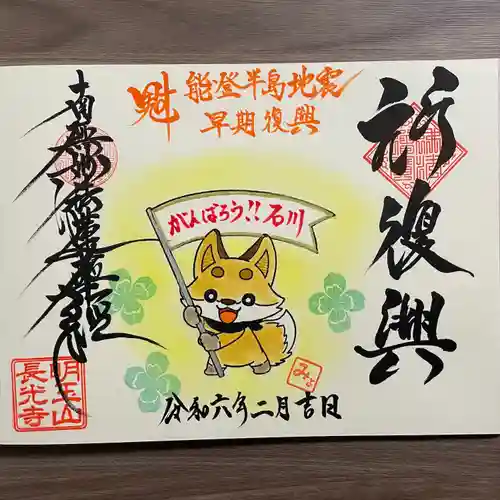 祈復興
魁
能登半島地震
早期復興
がんばろう!!石川
南無妙法蓮華経
令和六年二月吉日
明王山
長光寺